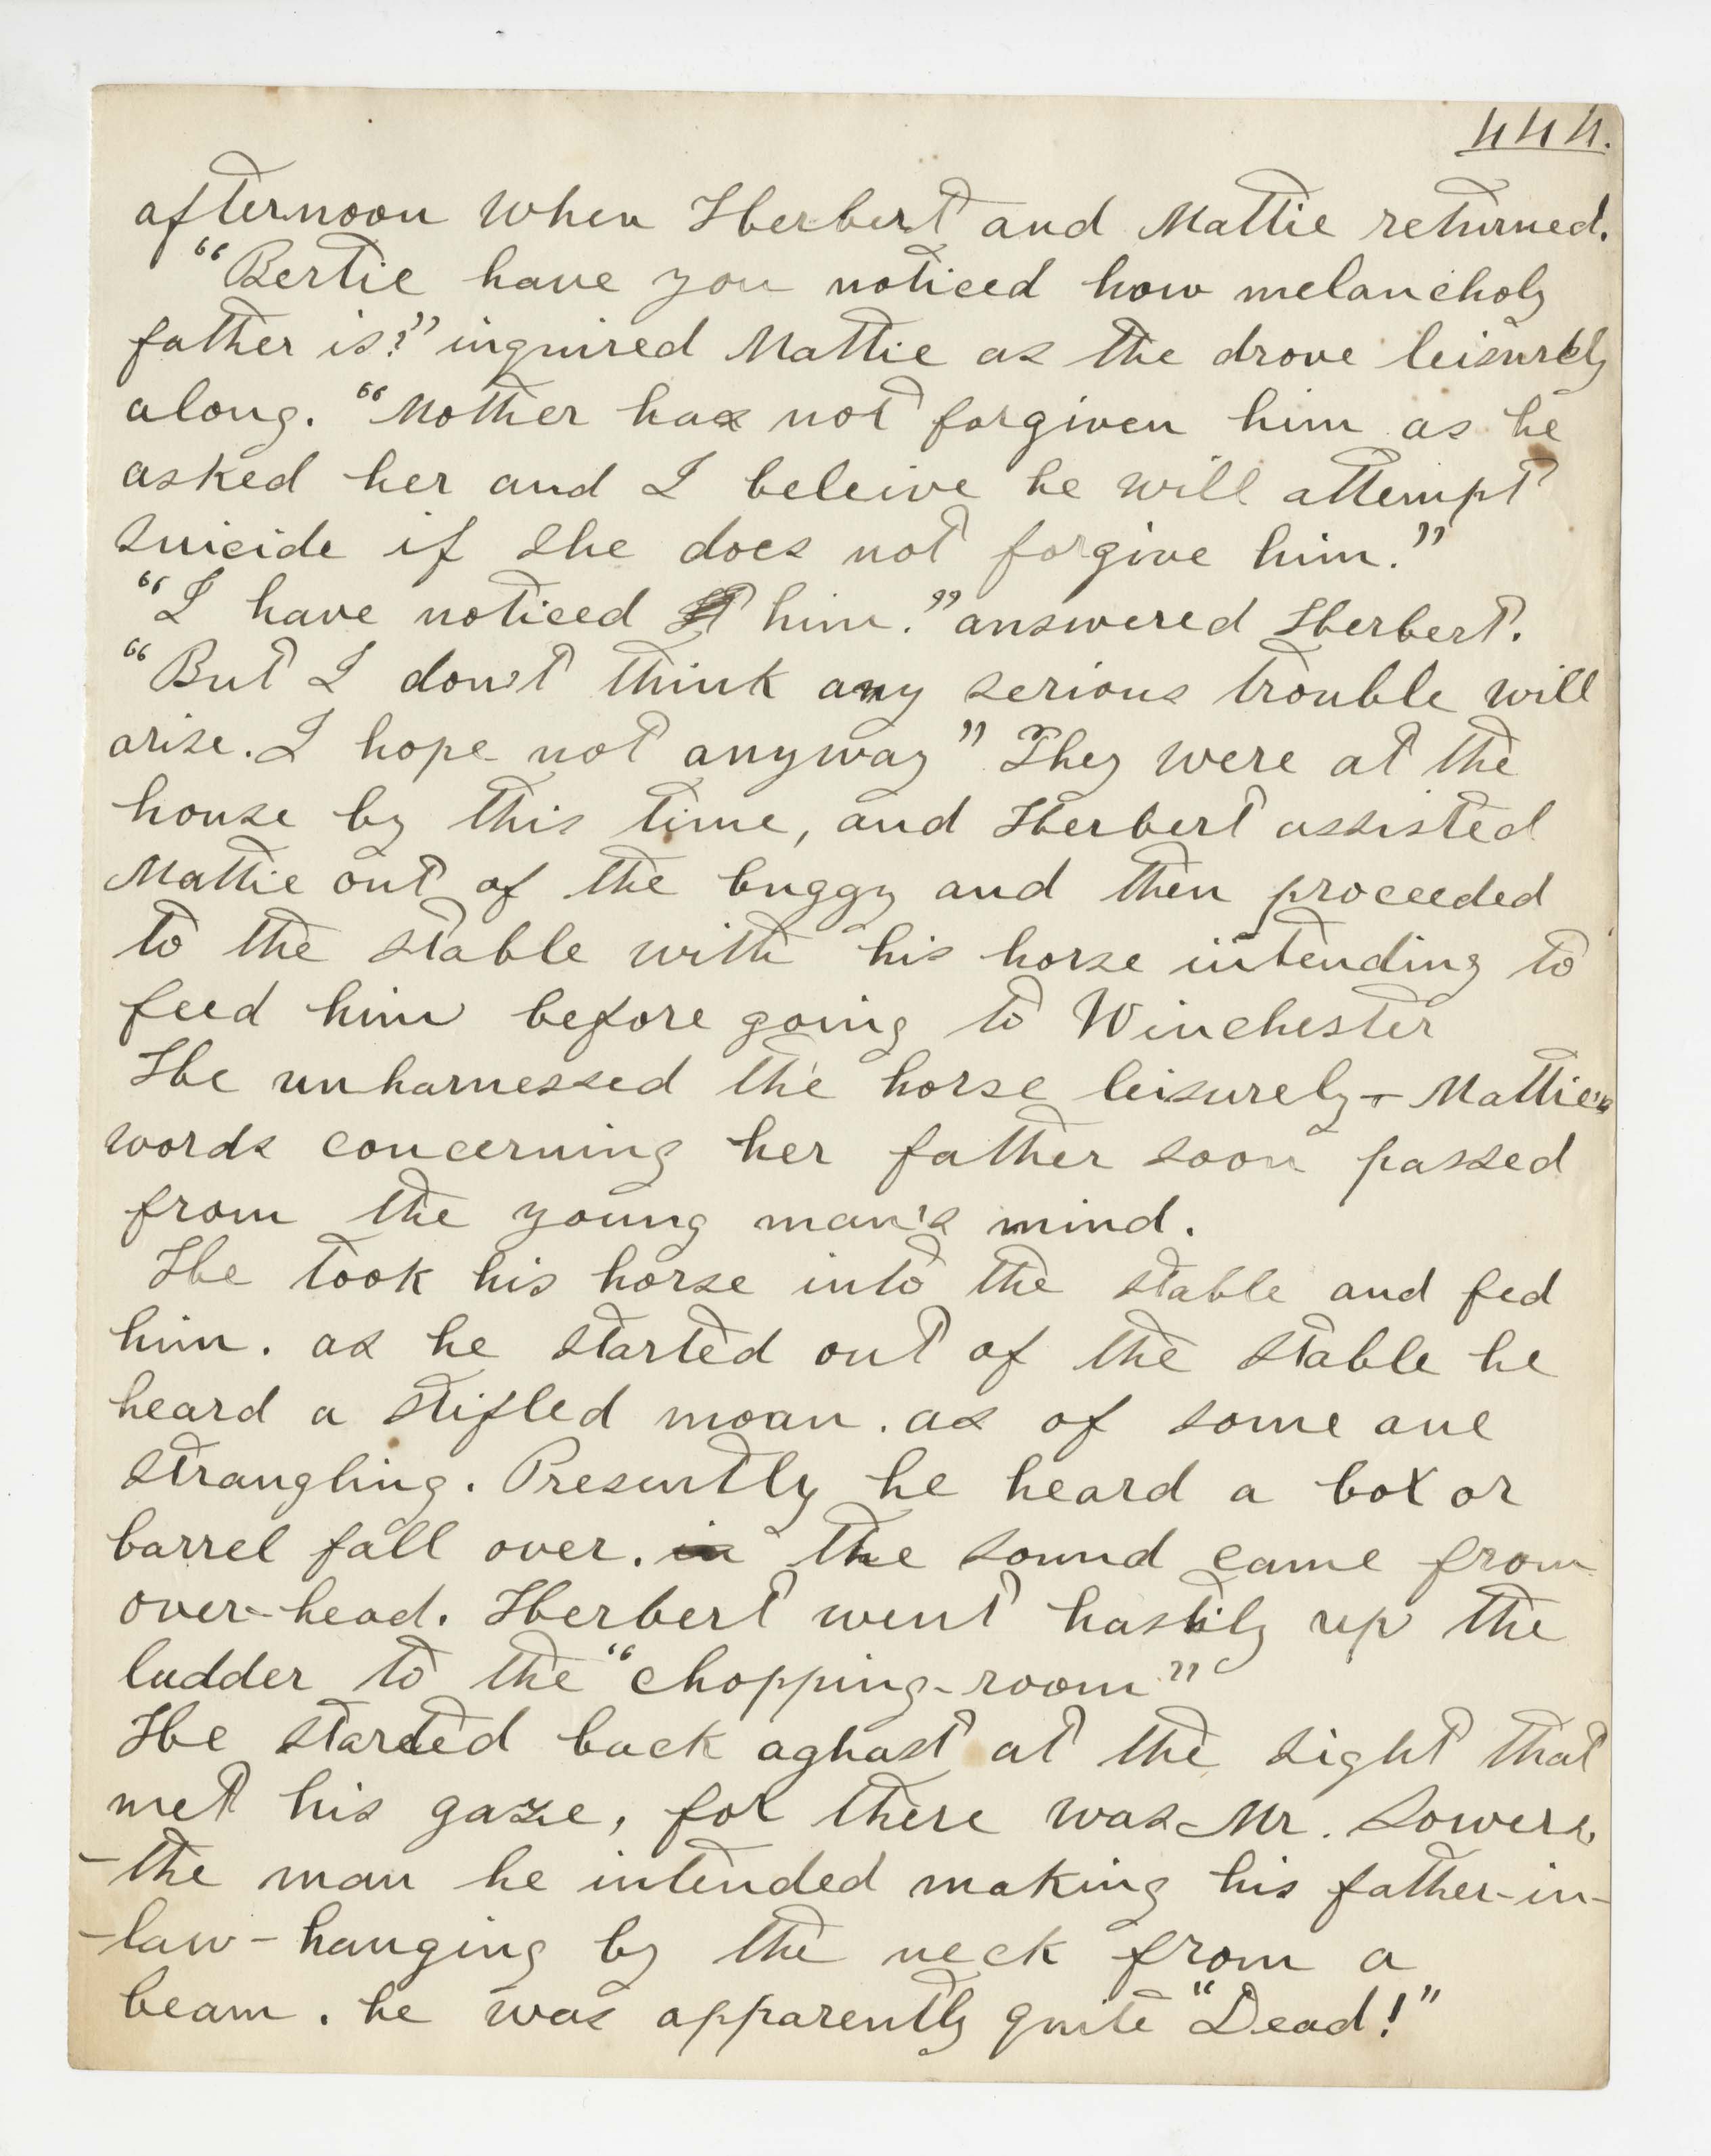 444.
afternoon when Herbert and Mattie returned.
"Bertie have you noticed how melancholy
father is?" inquired Mattie as the drove leisurely
along. "Mother has not forgiven him as he
asked her and I beleive he will attempt
suicide if she does not forgive him."
"I have noticed him." answered Herbert.
"But I don't think any serious trouble will
arise. I hope not anyway" They were at the
house by this time, and Herbert assisted
Mattie out of the buggy and then proceeded
to the stable with his horse intending to
feed him before going to Winchester
He unharnessed the horse leisurely - Mattie's
words concerning her father soon passed
from the young man's mind.
He took his horse into the stable and fed
him. as he started out of the stable he
heard a stifled moan. as of some one
strangling. Presently he heard a box or
barrel fall over. in the sound came from
over-head. Herbert went hastily up the
ladder to the "chopping-room"
He started back aghast at the sight that
met his gaze, for there was Mr. Sowers
-the man he intended making his father-in-
-law - hanging by the neck from a
beam. he was apparently quite "Dead!"